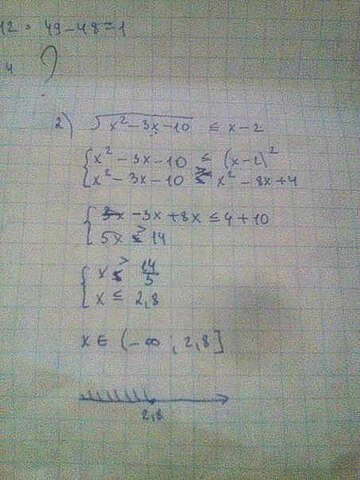 12 = 49 - 48 = 1
4
2) √(x² - 3x - 10) ≤ x - 2
{ x² - 3x - 10 ≤ (x - 2)²
x² - 3x - 10 ≤ x² - 8x + 4
{ - 3x + 8x ≤ 4 + 10
5x ≤ 14
{ x ≤ 14/5
x ≤ 2,8
x ∈ (-∞ ; 2,8]
2,8